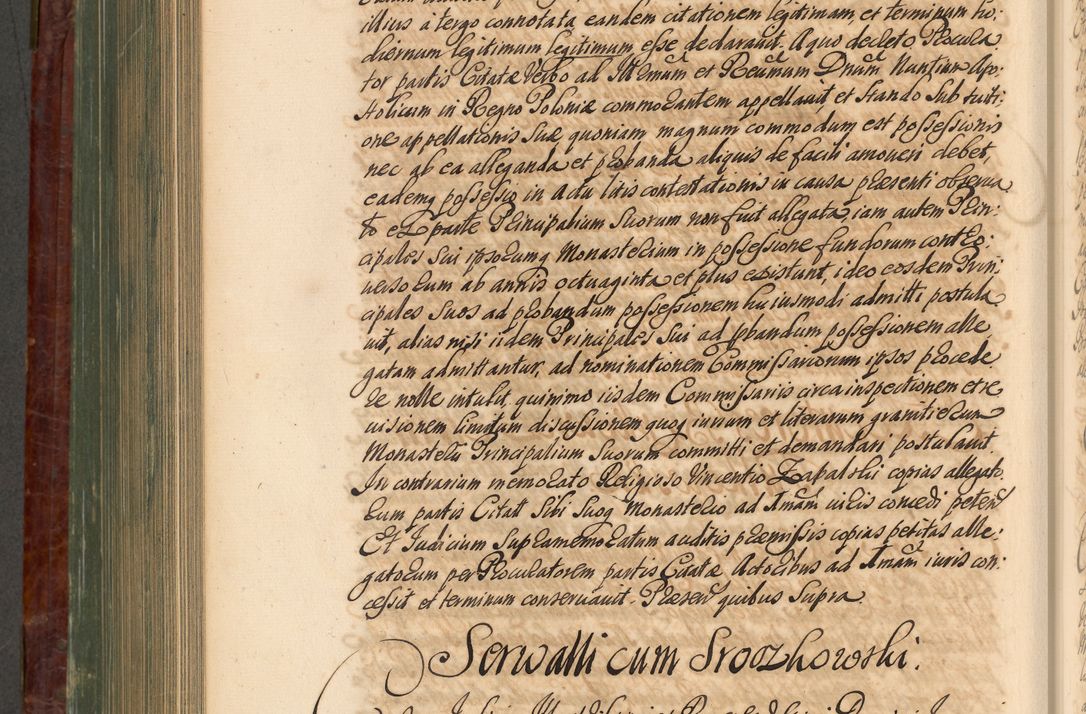 illius a tergo connotata eandem citationem legitimam, et terminum ho-
diernum legitimum legitimum esse declarauit. A quo decreto Procura
tor partis Citatæ Verbo ad Illmum et Reumum Dnum Nuntium Apo-
stolicum in Regno Poloniæ commorantem appellauit, et stando sub tuiti-
one appellationis suæ quoniam magnum commodum est possessionis
nec ab ea alleganda et probanda aliquis de facili amoueri debet,
eademq possessio in actu litis contestationis in causa præsenti obserua
to ex parte Principalium suorum non fuit allegata, iam autem Prin-
cipales sui ipsorumq Monasterium in possessione fundorum contro-
uersorum ab annis octuaginta et plus existunt, ideo eosdem Prin-
cipales suos ad probandum possessionem huiusmodi admitti postula
uit, alias nisi iidem Principales sui ad pbandum possessionem alle
gatam admittantur, ad nominationem Commissariorum ipsos procede
re nolle intulit, quinimo iisdem Commissariis circa inspectionem et re
uisionem limitum discussionem quoq iurium et literarum granitierum
Monasterii Principalium suorum committi et demandari postulauit.
In contrarium memorato Religioso Vincentio Zapalski copias allegato-
rum partis Citatæ sibi suoq Monasterio ad Imam iuris concedi peten
Et Iudicium supramemoratum auditis præmissis copias petitas alle-
gatorum per Procuratorem partis Citatæ Actoribus ad Imam iuris con-
cessit et terminum conseruauit. Præsen quibus supra.
Serwalli cum Sroczkowski.